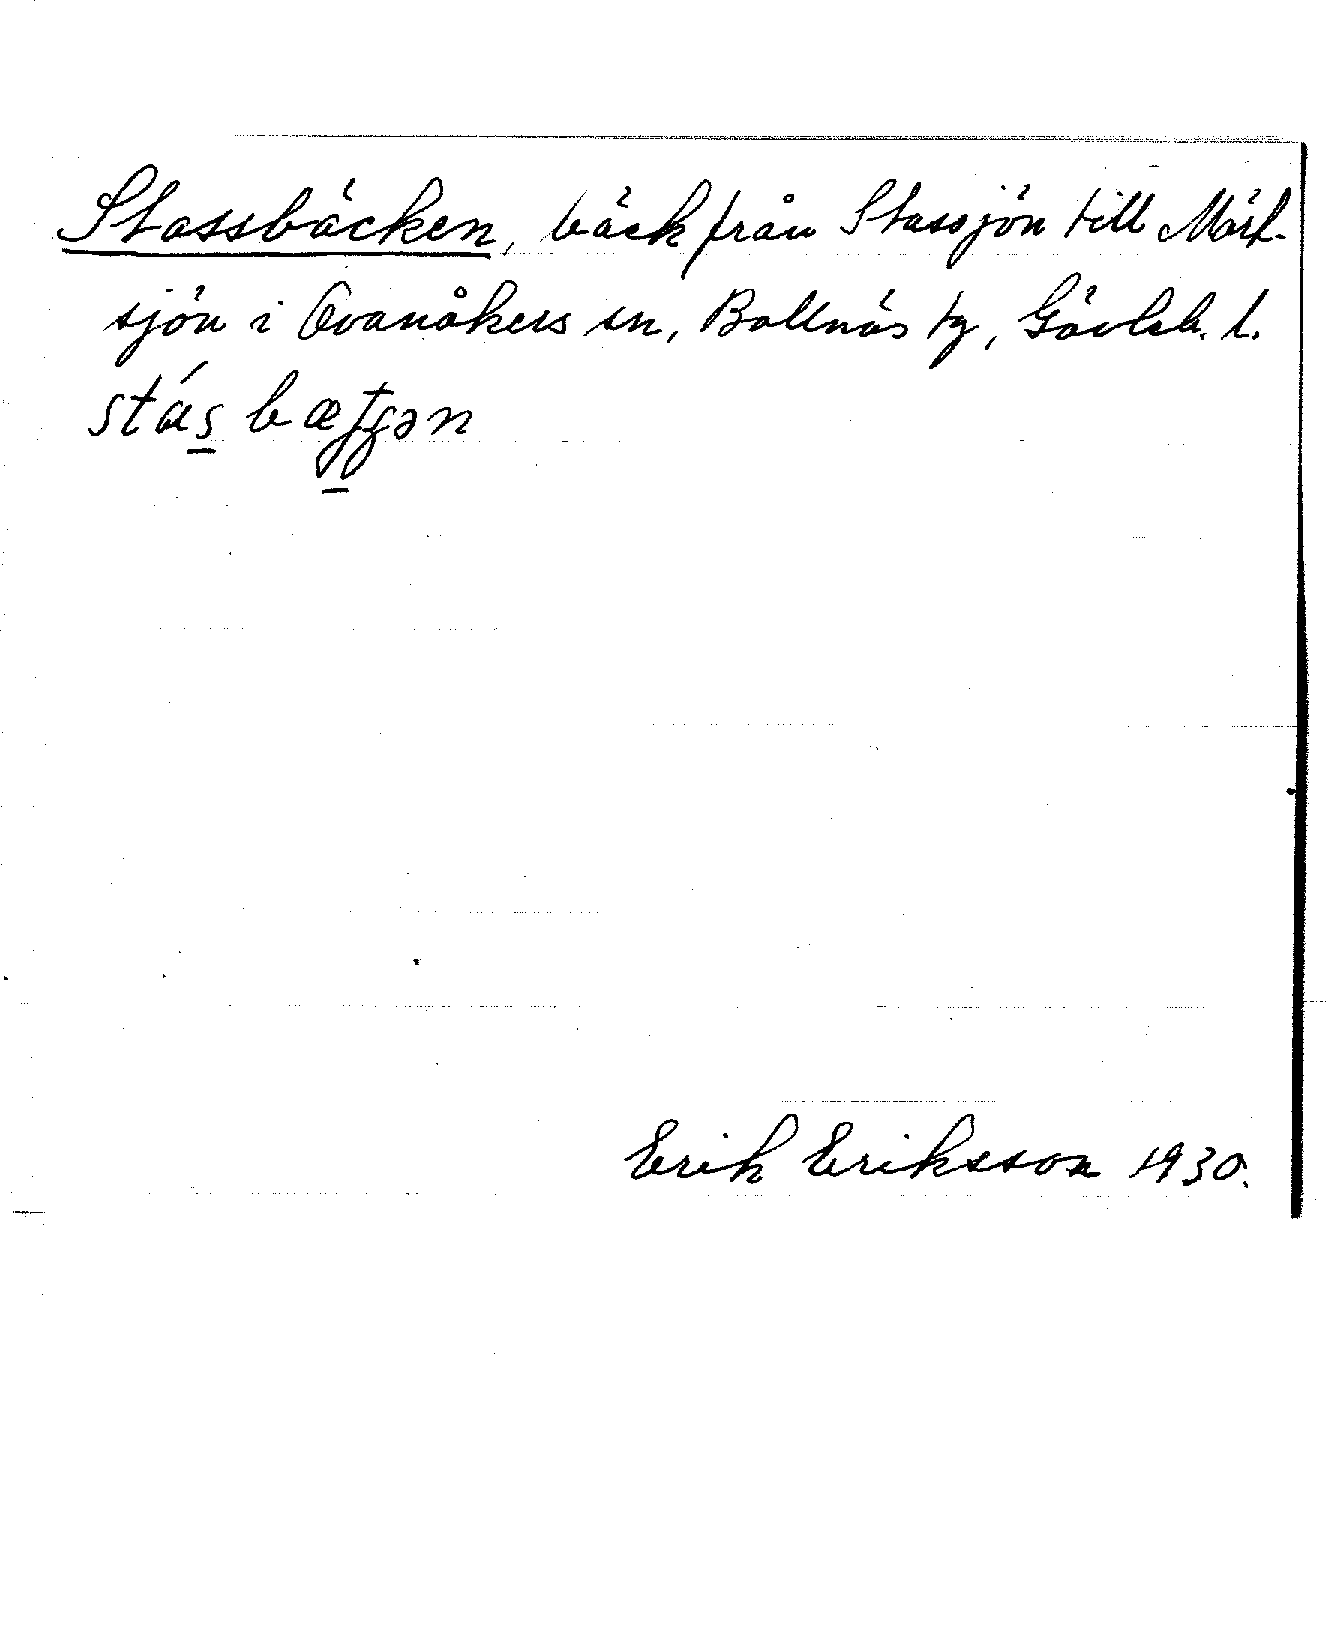 Stassbäcken, bäck från Stassjön till Mört-
sjön i Ovanåkers sn, Bollnäs tg, Gävleb. l.
stás̲ bæʈʂən
Erik Eriksson 1930.